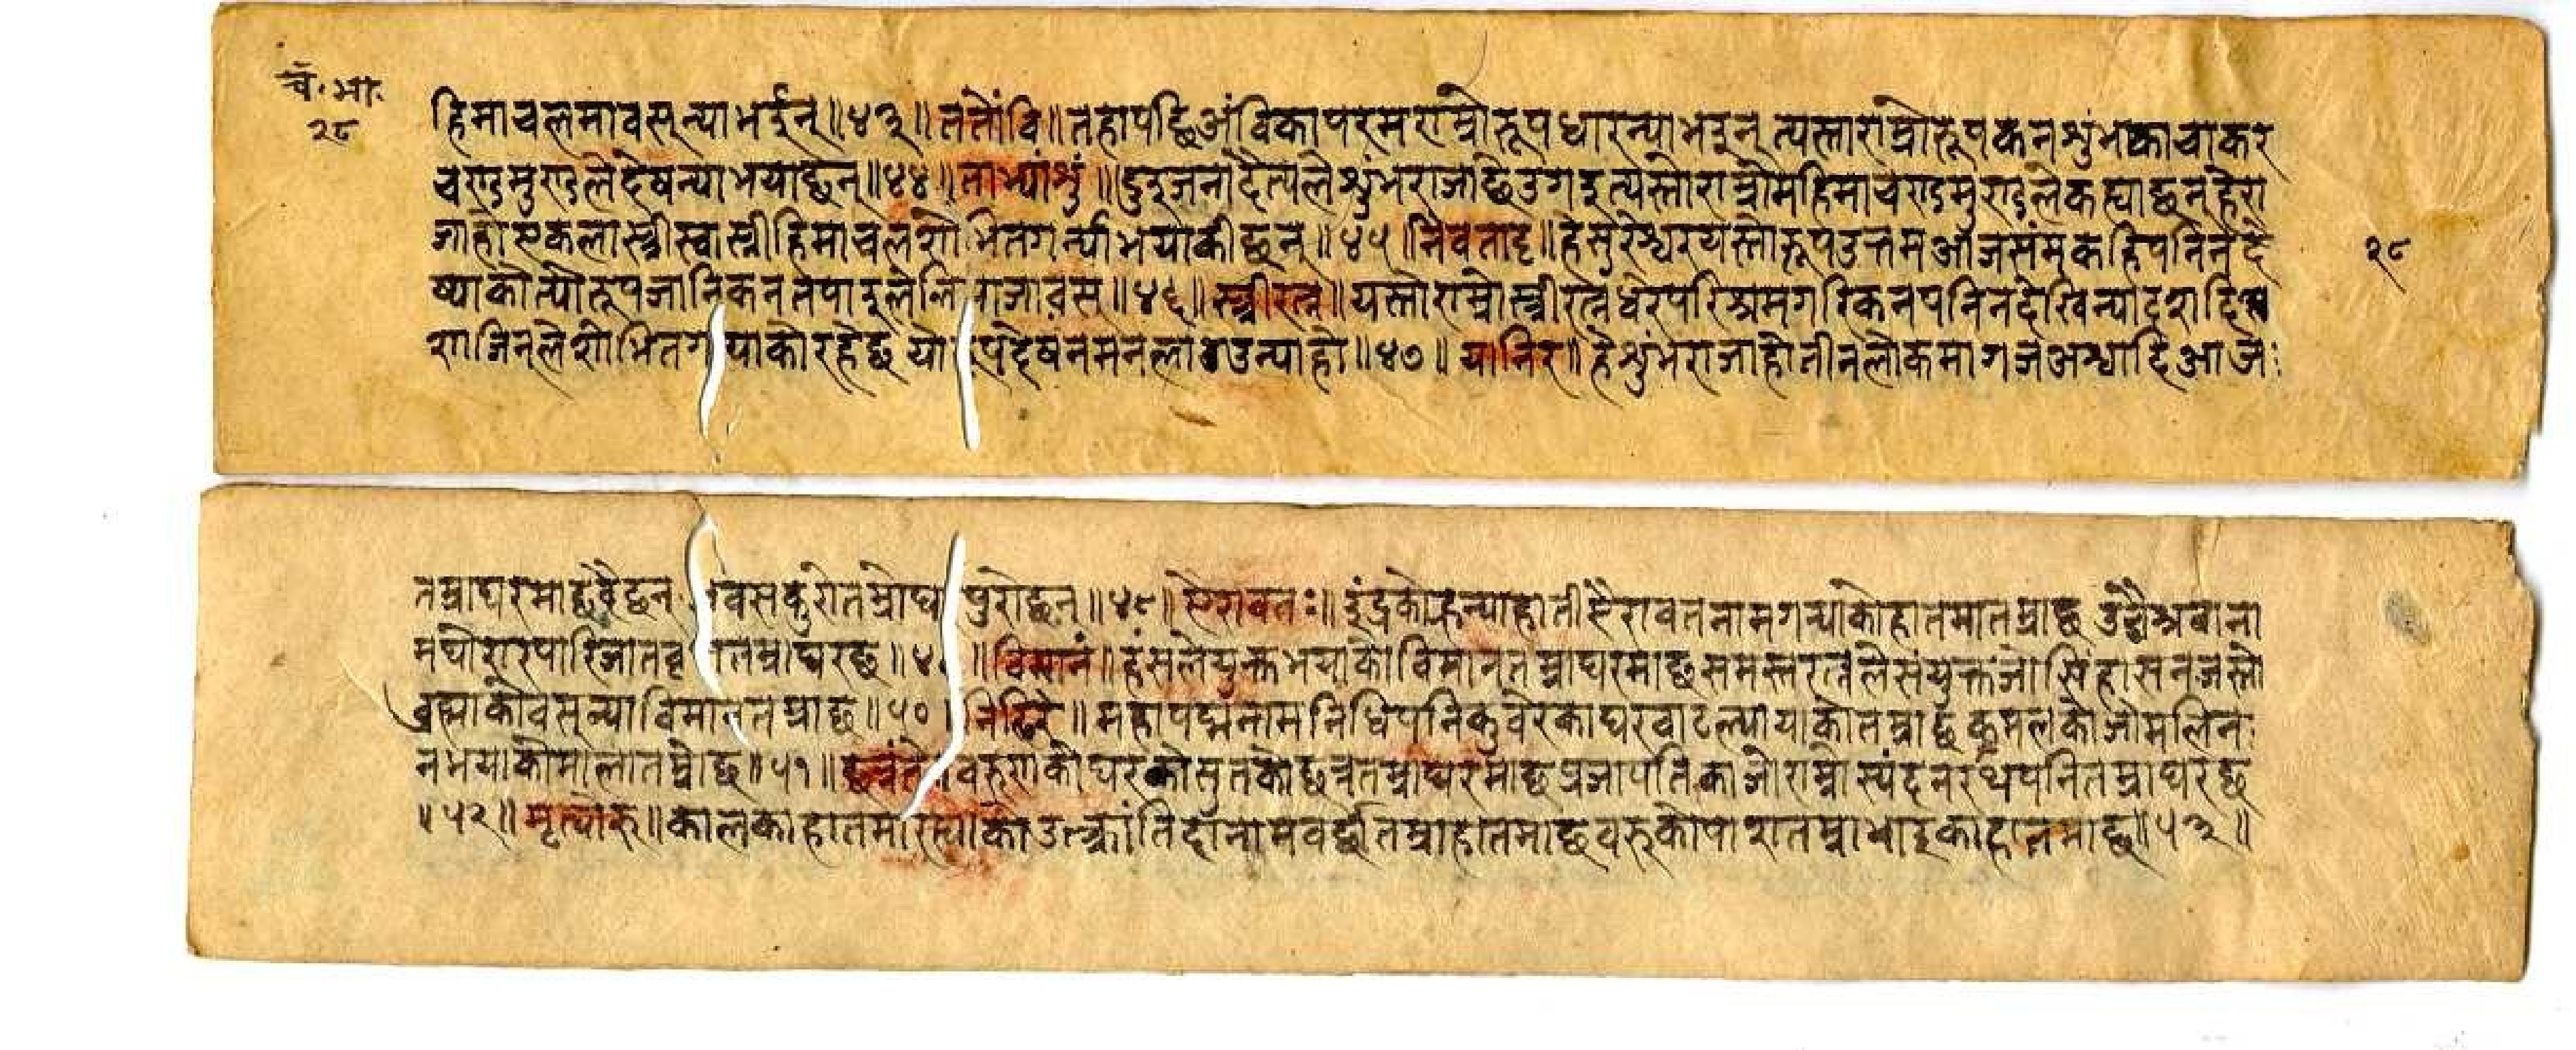 चं. भा.
२८
हिमाचलमा वसून्या भईन्॥४३॥ ततोंवि॥ तहापछि अंविका परम राम्रो रूप धारन्या भइन् त्यस्ता राम्रो रूपकन शुंभका चाकर
चण्ड मुण्डले देषन्या भयाछन्॥४४॥ ताभ्यां शुं॥ दुइजना दैत्यले शुंभ राजाछेउ गइ त्यस्तो राम्रो महिमा चण्डमुण्डले कह्याछन् हे रा
जा हो एकला स्त्री स्वास्नी हिमाचल शोभित गर्न्या भयाकी छन्॥४५॥ नैवतादृ॥ हे सुरेश्वर यस्तो रूप उत्तम आजसंम कहिं पनि न दे
ष्याको त्यो रूप जानिकन तपाइले लि राजा वस॥४६॥ स्त्रीरत्न॥ यस्तो राम्रो स्त्रीरत्न धेरै परिश्रम गरिकन पनि न देखिन्या दशदि
शाजिन्ले शोभित ग याको रहेछ यो पदेषन मन लाउन्या हो॥४७॥ यानिर॥ हे शुंभ राजा हो तीन लोकमा गज अश्वादि आज
२८
तम्राघरमा छँदैछन् वस कुरो तम्रो घ पुरो छन्॥४८॥ ऐरावतः॥ इंद्रको हन्या हाती ऐरावत नाम गन्याको हातमा तम्रा छ उच्चैश्रवा ना
म घोरा र पारिजात वृ तम्रा घर छ॥४ ॥ विमानं॥ हंसले युक्त भयाको विमान तम्रा घरमा छ समस्त रत्नले संयुक्त जो सिंहासन जस्तो
ब्रह्माको वसून्या विमान तम्रा छ॥५०॥ निधिरे॥ महापद्म नाम निधि पनि कुवेरका घरवाट ल्यायाको तम्रा छ कमलको जो मलिन
न भयाको माला तम्रो छ॥५१॥ छत्रंते वरुणको घरको सुतको छत्र तम्रा घरमा छ प्रजापतिका जो राम्रो स्यंदन रथ पनि तम्रा घर छ
॥५२॥ मृत्योरु॥ कालका हातमा रह्याको उत्क्रांतिदा नाम वर्छा तम्रा हातमा छ वरुको पाश तम्रा भाइका हातमा छ॥५३॥